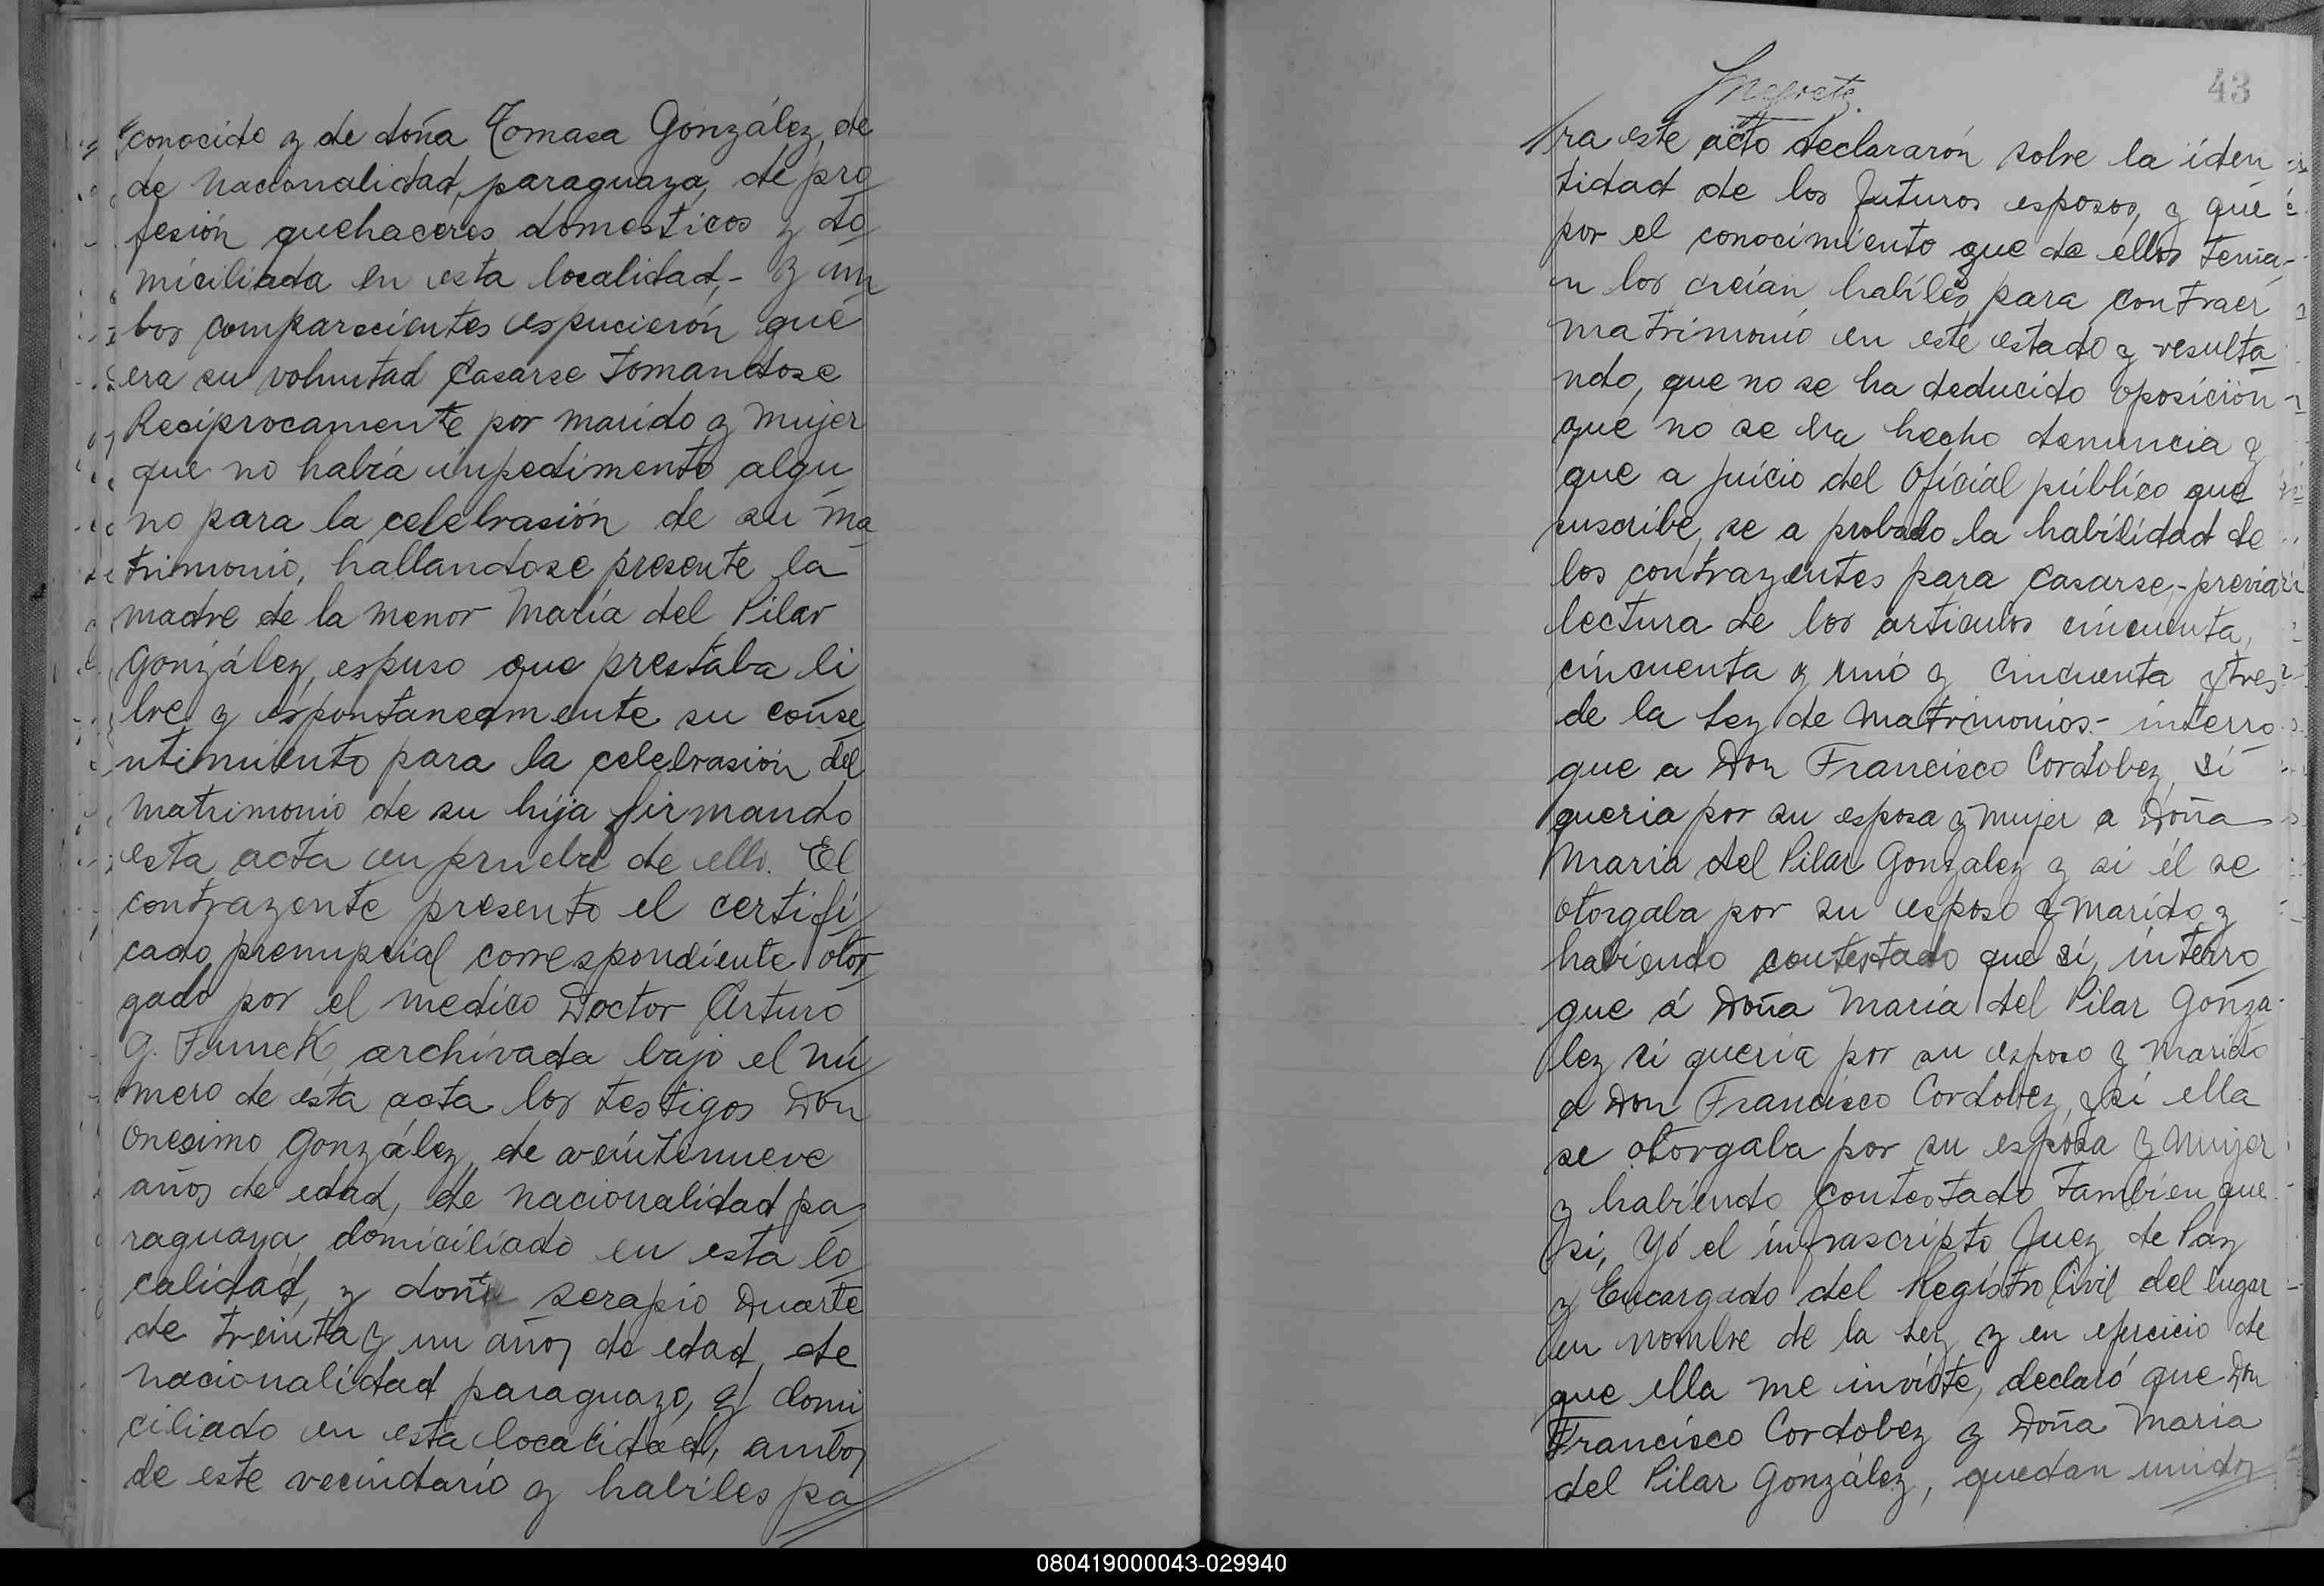 conocido y de doña Tomasa González, de
de nacionalidad, paraguaya, de pro
fesión quehaceres domesticos y do
miciliada en esta localidad,- y am
bos comparecientes espucierón que
era su voluntad casarse tomandose
Reciprocamente por marido y mujer
que no había impedimento algu
no para la celebrasión de su ma
trimonio, hallandose presente la
madre de la menor María del Pilar
González, espuso que prestaba li
bre y espontaneamente su conse
ntimiento para la celebrasión del
matrimonio de su hija firmando
esta acta en prueba de ello. El
contrayente presento el certifi
cado prenupcial correspondiente otor
gado por el medico Doctor Arturo
G. Funck archivada bajo el nú
mero de esta acta los testigos Don
Onesimo González, de veintenueve
años de edad, de nacionalidad pa
raguaya, domiciliado en esta lo
calidad, y don serapio Duarte
de treinta y un años de edad, de
nacionalidad paraguayo, y domi
ciliado en esta localidad, ambos
de este vecindario y habiles pa
43
ra este acto declararón sobre la iden
tidad de los futuros esposos, y que
por el conocimiento que de ellos tenia-
n los creían habiles para contraer
matrimonio en este estado y resulta
ndo, que no se ha deducido oposición
que no se ha hecho denuncia y
que a juicio del Oficial público que
suscribe, se a probado la habilidad de
los contrayentes para casarse,- previa
lectura de los articulos cincuenta,
cincuenta y uno y cincuenta y tres
de la Ley de Matrimonios.- interro
que a Don Francisco Cordobez, si
queria por su esposa y mujer a Doña
Maria del Pilar Gonzalez y si él se
otorgaba por su esposo y marido y
habiendo contestado que si, interro
que á Doña María del Pilar Gonza-
lez si queria por su esposo y marido
a Don Francisco Cordobez, y si ella
se otorgaba por su esposa y mujer
y habiendo contestado tambien que
si, Yó el infrascripto Juez de Paz
y Encargado del Registro Civil del lugar
en nombre de la Ley y en ejercicio de
que ella me inviste, declaró que Don
Francisco Cordobez y Doña Maria
del Pilar González, quedan unidos
080419000043-029940